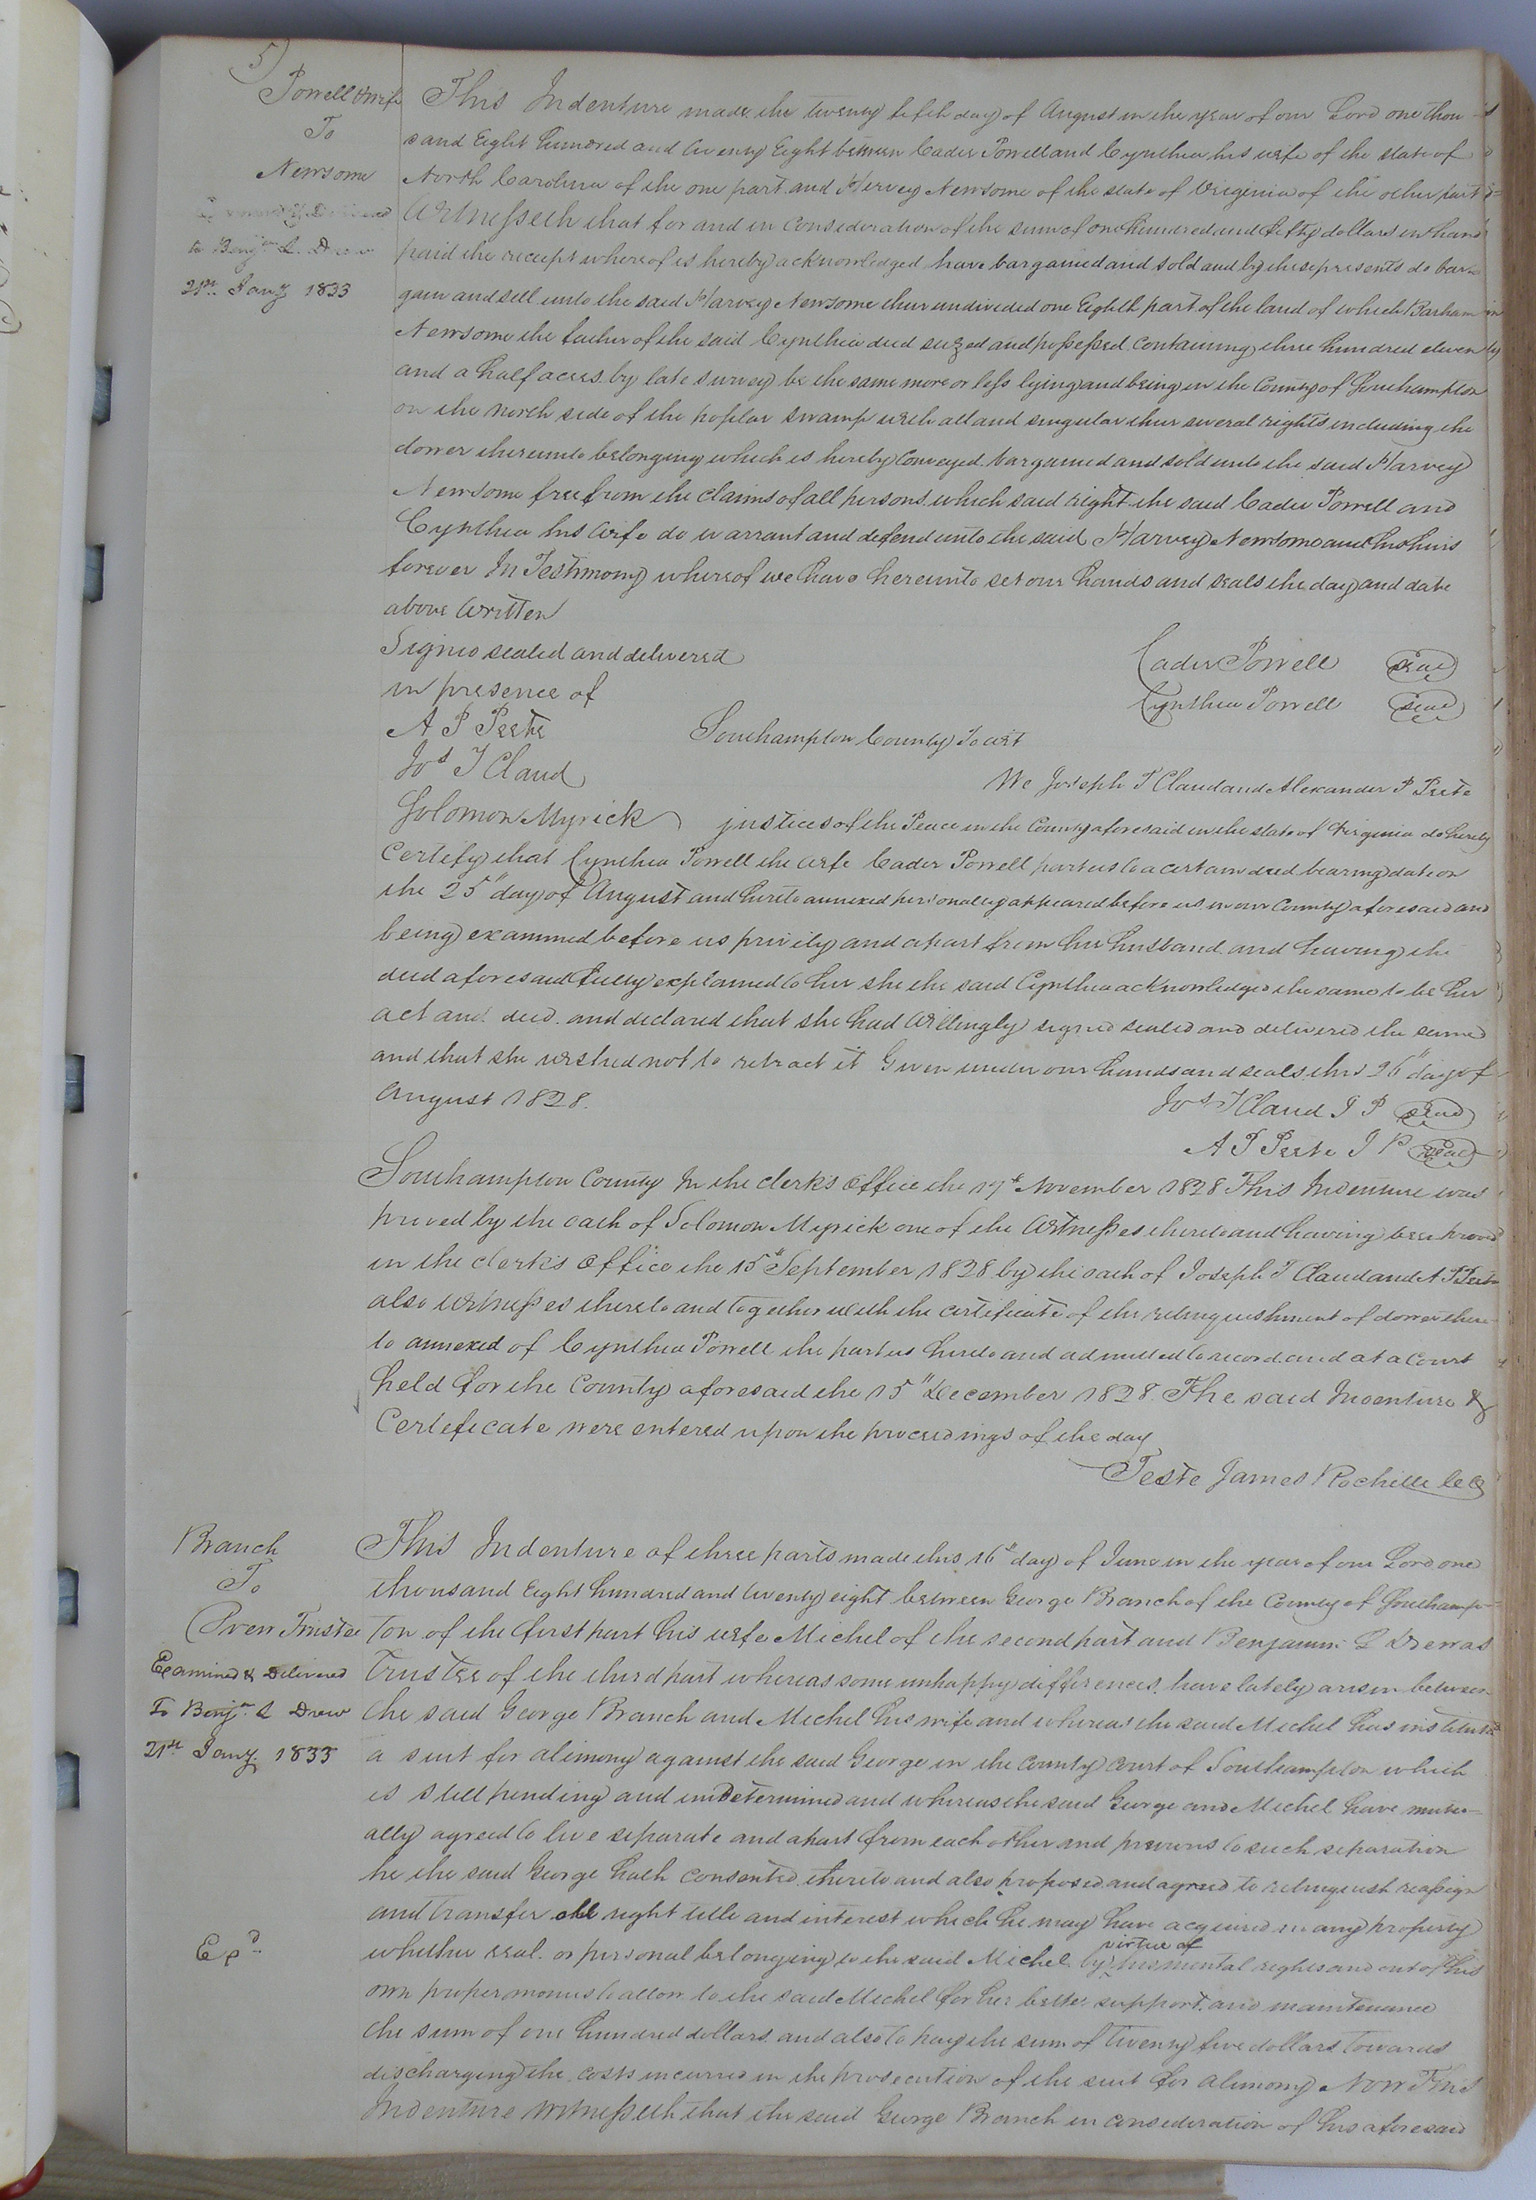 5)
Powell & wife
To
Newsome
to Benjn L. Drew
21st Jany 1833
This Indenture made the twenty fifth day of August in the year of our Lord one thou
sand Eight hundred and twenty Eight between Cader Powell and Cynthia his wife of the state of
North Carolina of the one part and Harvey Newsome of the state of Virginia of the other part
Witnesseth that for and in consideration of the sum of one hundred and fifty dollars in hand
paid the receipt whereof is hereby acknowledged have bargained and sold and by these presents do bar
gain and sell unto the said Harvey Newsome their undivided one Eighth part of the land of which Barham
Newsome the father of the said Cynthia died seized and possessed containing three hundred eleven
and a half acres by late survey be the same more or less lying and being in the County of Southampton
on the north side of the poplar swamp with all and singular their several rights including the
dower thereunto belonging which is hereby conveyed bargained and sold unto the said Harvey
Newsome free from the claims of all persons which said right the said Cader Powell and
Cynthia his wife do warrant and defend unto the said Harvey Newsome and his heirs
forever In Testimony whereof we have hereunto set our hands and seals the day and date
above written
Signed sealed and delivered
in presence of
A P Peete
Jos T Claud
Solomon Myrick
Cader Powell seal
Cynthia Powell seal
Southampton County To wit
We Joseph T Claud and Alexander P Peete
justices of the Peace in the County aforesaid in the state of Virginia do hereby
certify that Cynthia Powell the wife Cader Powell parties to a certain deed bearing date on
the 25" day of August and hereto annexed personally appeared before us in our County aforesaid and
being examined before us privily and apart from her husband and having the
deed aforesaid fully explained to her she the said Cynthia acknowledged the same to be her
act and deed and declared that she had willingly signed sealed and delivered the same
and that she wished not to retract it Given under our hands and seals this 26" day of
August 1828.
Jos T Claud J P seal
A P Peete J P seal
Southampton County In the clerk's office the 17th November 1828 This Indenture was
proved by the oath of Solomon Myrick one of the witnesses thereto and having been proved
in the clerk's office the 15th September 1828 by the oath of Joseph T Claud and A P Peete
also witnesses thereto and together with the certificate of the relinquishment of dower there
to annexed of Cynthia Powell the parties hereto and admitted to record and at a court
held for the County aforesaid the 15" December 1828. The said Indenture &
Certificate were entered upon the proceedings of the day
Teste James Rochelle
Branch
To
Drew Trustee
Examined & Delivered
To Benjn L Drew
21st Jany. 1833
Exd
This Indenture of three parts made this 16th day of June in the year of our Lord one
thousand Eight hundred and twenty eight between George Branch of the County of Southamp
ton of the first part his wife Michel of the second part and Benjamin L Drew as
Trustee of the third part whereas some unhappy differences have lately arisen between
the said George Branch and Michel his wife and whereas the said Michel has instituted
a suit for alimony against the said George in the County court of Southampton which
is still pending and undetermined and whereas the said George and Michel have mutu
ally agreed to live separate and apart from each other and previous to such separation
he the said George hath consented thereto and also proposed and agreed to relinquish reassign
and transfer all right title and interest which he may have acquired in any property
whether real or personal belonging to the said Michel by virtue of his marital rights and out of his
own proper monies to allow to the said Michel for her better support and maintenance
the sum of one hundred dollars and also to pay the sum of twenty five dollars towards
discharging the costs incurred in the prosecution of the suit for alimony Now This
Indenture witnesseth that the said George Branch in consideration of his aforesaid